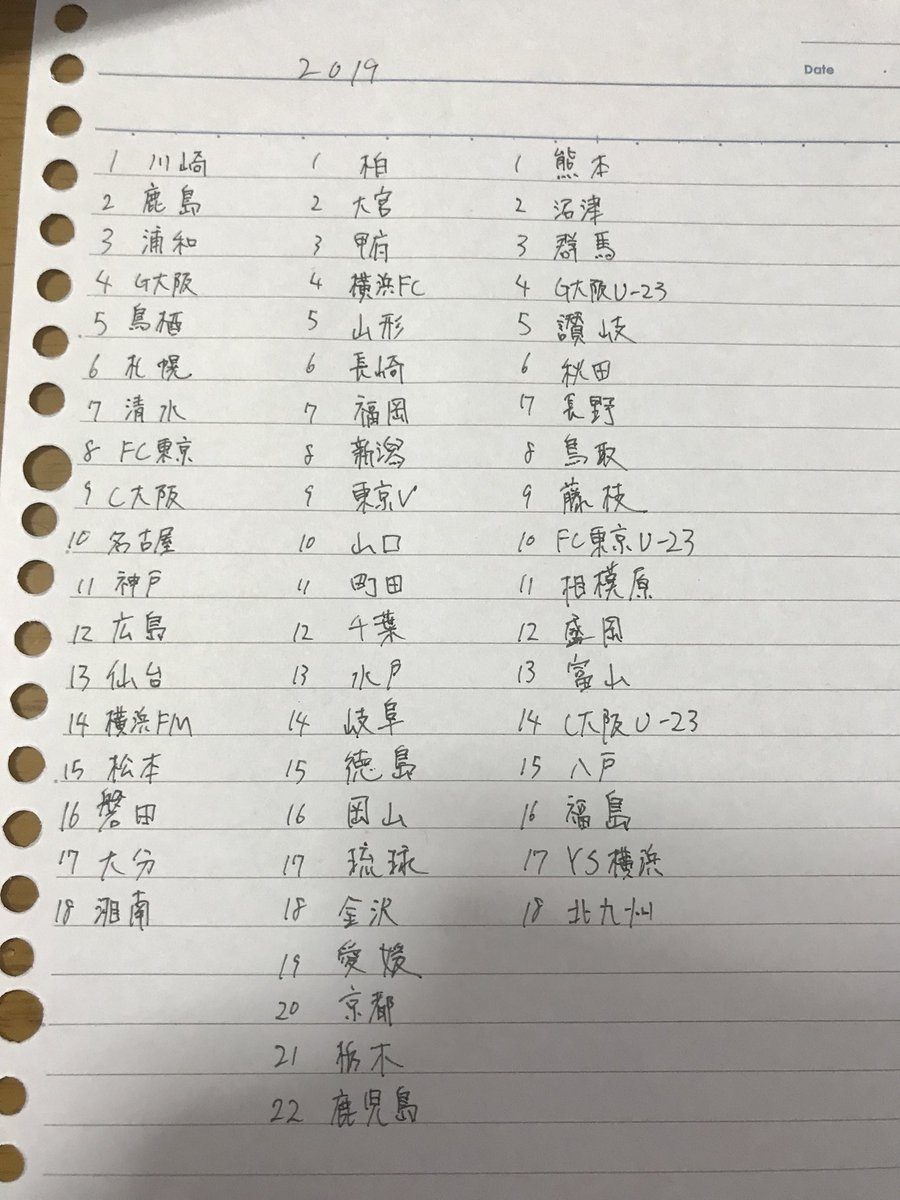 2019
Date
1 川崎
2 鹿島
3 浦和
4 G大阪
5 鳥栖
6 札幌
7 清水
8 FC東京
9 C大阪
10 名古屋
11 神戸
12 広島
13 仙台
14 横浜FM
15 松本
16 磐田
17 大分
18 湘南
1 柏
2 大宮
3 甲府
4 横浜FC
5 山形
6 長崎
7 福岡
8 新潟
9 東京V
10 山口
11 町田
12 千葉
13 水戸
14 岐阜
15 徳島
16 岡山
17 琉球
18 金沢
19 愛媛
20 京都
21 栃木
22 鹿児島
1 熊本
2 沼津
3 群馬
4 G大阪U-23
5 讃岐
6 秋田
7 長野
8 鳥取
9 藤枝
10 FC東京U-23
11 相模原
12 盛岡
13 富山
14 C大阪U-23
15 八戸
16 福島
17 YS横浜
18 北九州